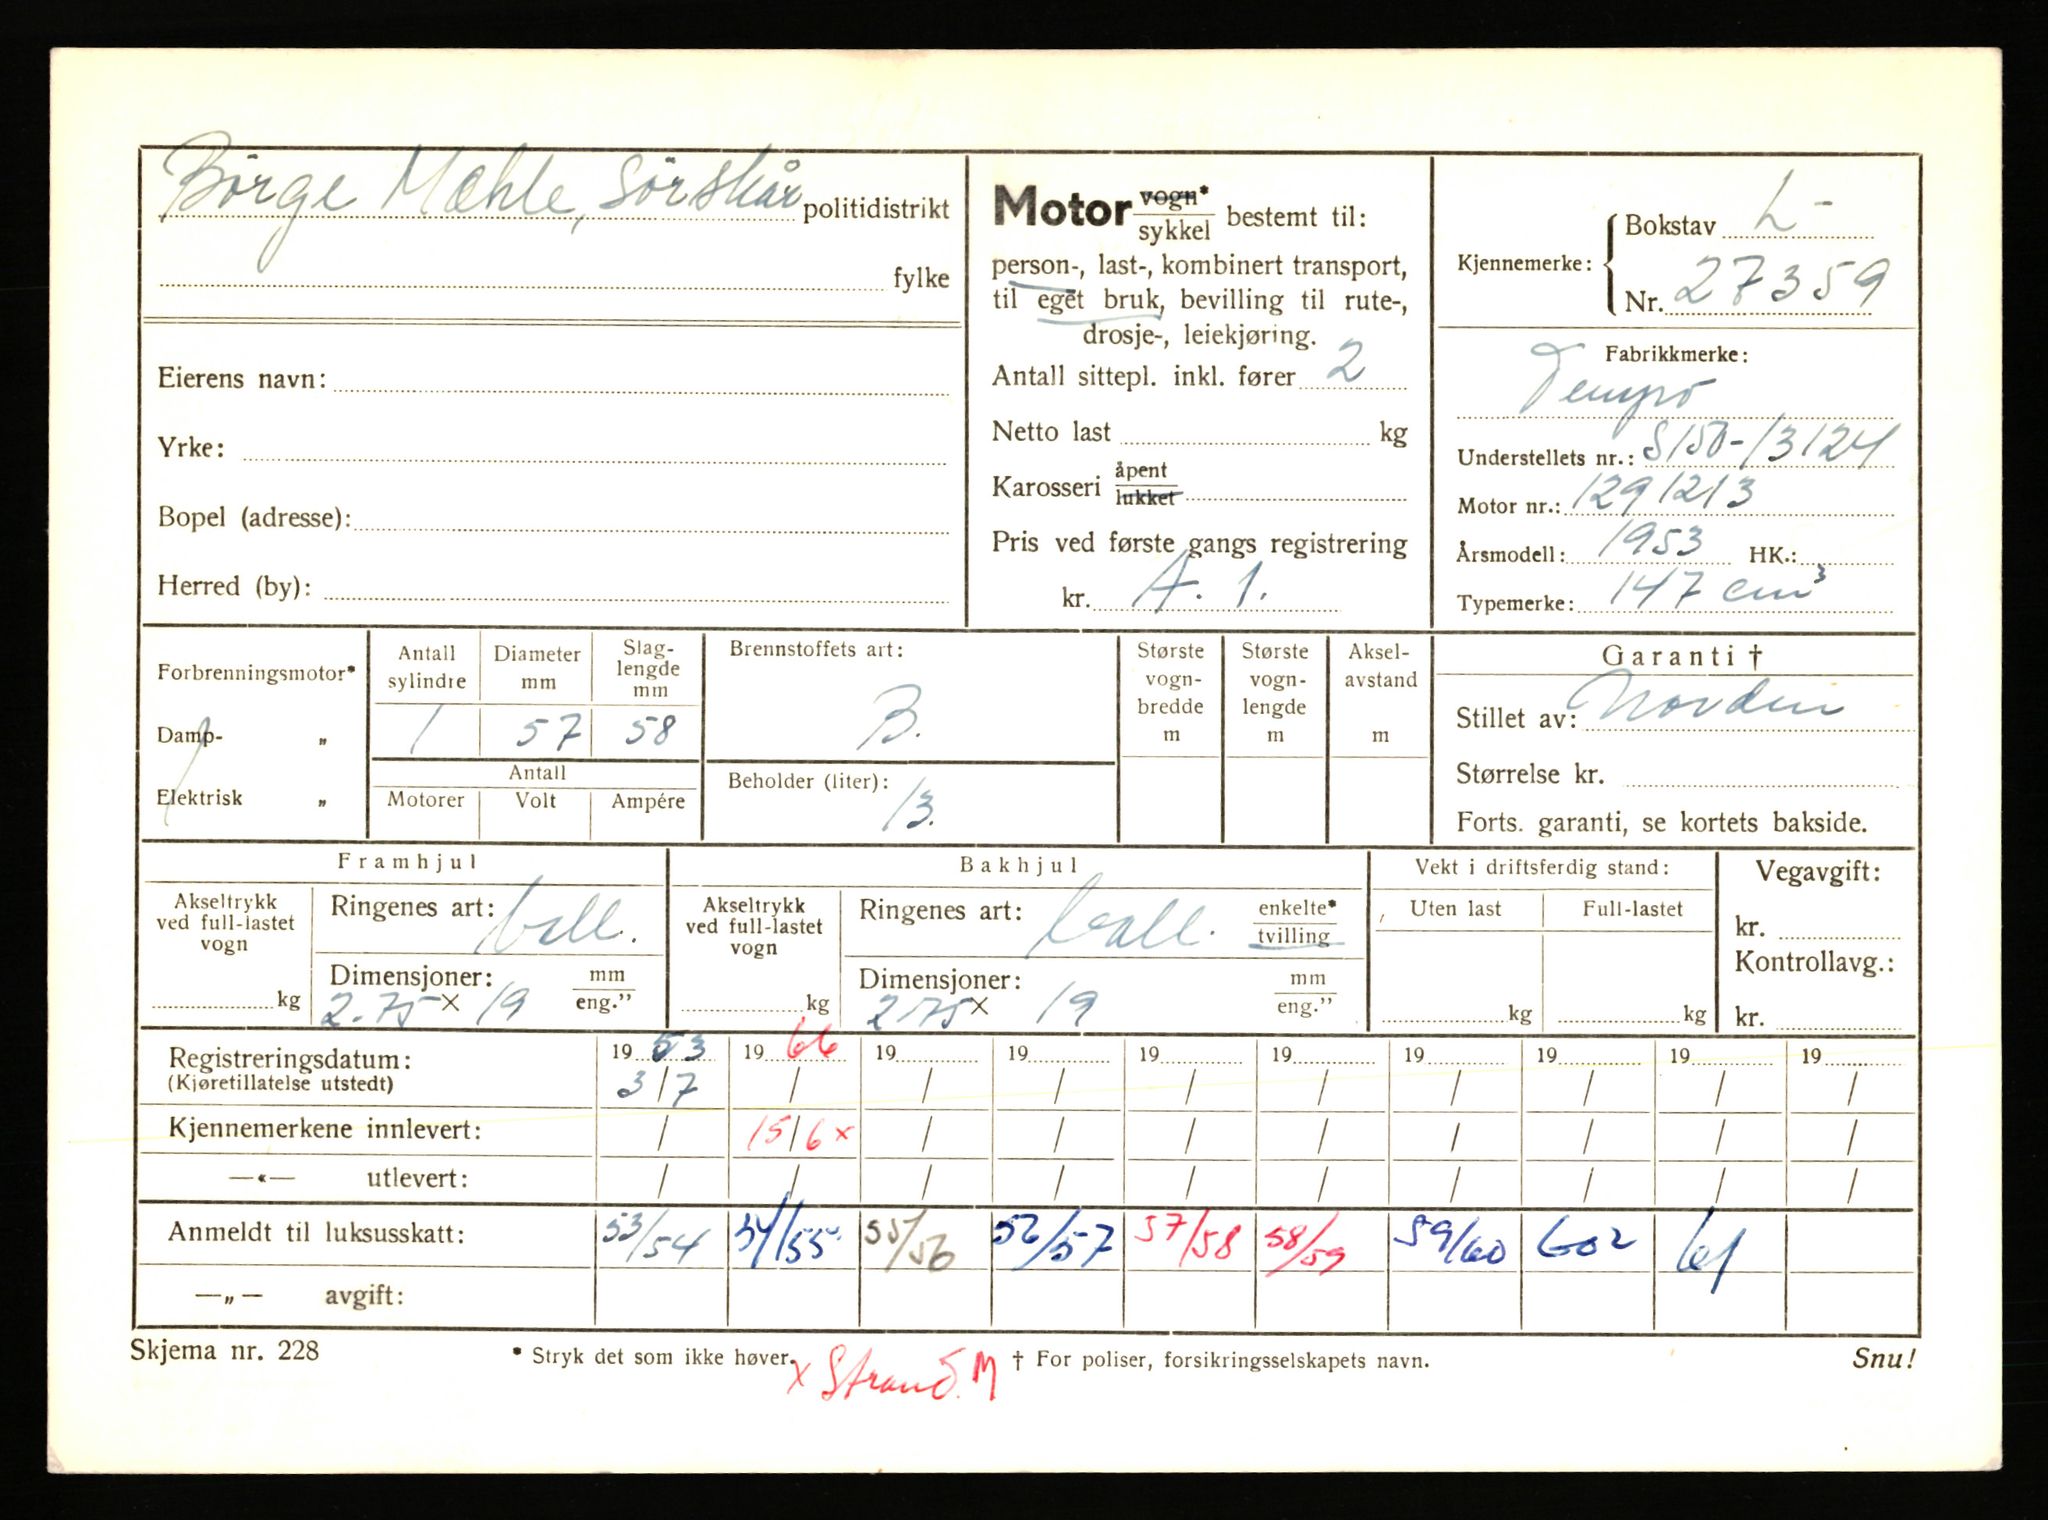 Børge Mæhle, Sörskår politidistrikt
fylke
Eierens navn:
Yrke:
Bopel (adresse):
Herred (by):
Motor vogn* / sykkel bestemt til:
person-, last-, kombinert transport,
til eget bruk, bevilling til rute-,
drosje-, leiekjøring.
Antall sittepl. inkl. fører 2
Netto last kg
Karosseri åpent / lukket
Pris ved første gangs registrering
kr. A. 1.
Kjennemerke: Bokstav L-
Nr. 27359
Fabrikkmerke:
Tempo
Understellets nr.: S150-13124
Motor nr.: 1291213
Årsmodell: 1953 HK.:
Typemerke: 147 cm³
Forbrenningsmotor*
Damp- „
Elektrisk „
Antall sylindre Diameter mm Slag-lengde mm
1 57 58
Antall
Motorer Volt Ampére
Brennstoffets art:
B.
Beholder (liter):
13.
Største vogn-bredde m
Største vogn-lengde m
Aksel-avstand m
Garanti †
Stillet av: Norden
Størrelse kr.
Forts. garanti, se kortets bakside.
Framhjul
Akseltrykk ved full-lastet vogn
kg
Ringenes art: ball.
Dimensjoner: mm / eng.”
2.75 x 19
Bakhjul
Akseltrykk ved full-lastet vogn
kg
Ringenes art: ball. enkelte* / tvilling
Dimensjoner: mm / eng.”
2.75 x 19
Vekt i driftsferdig stand:
Uten last Full-lastet
kg kg
Vegavgift:
kr.
Kontrollavg.:
kr.
Registreringsdatum: 1953 1966 19 19 19 19 19 19 19 19
(Kjøretillatelse utstedt) 3/7 / / / / / / / / /
Kjennemerkene innlevert: / 15/6 x / / / / / / / /
—«— utlevert: / / / / / / / / / /
Anmeldt til luksusskatt: 53/54 54/55 55/56 56/57 57/58 58/59 59/60 602 61
—„— avgift:
Skjema nr. 228 * Stryk det som ikke høver. † For poliser, forsikringsselskapets navn. Snu!
x Strand. M